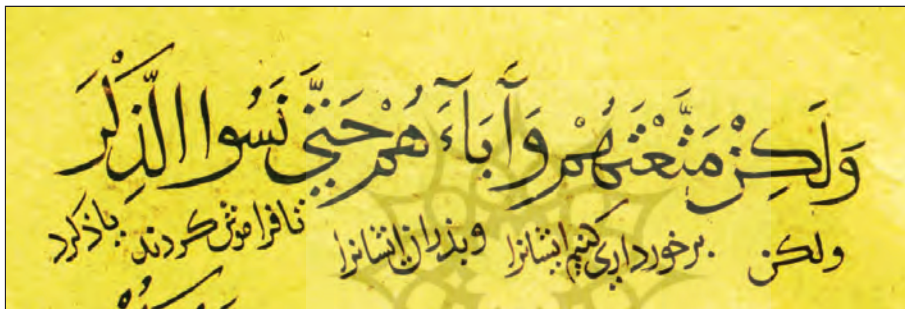 وَلَكِنْ مَتَّعْتَهُمْ وَآبَاءَ هُمْ حَتَّىٰ نَسُوا الذِّكْرَ
ولكن برخورداری کنیم ایشانرا وبذران ایشانرا تا فراموش کردند یاذکرد